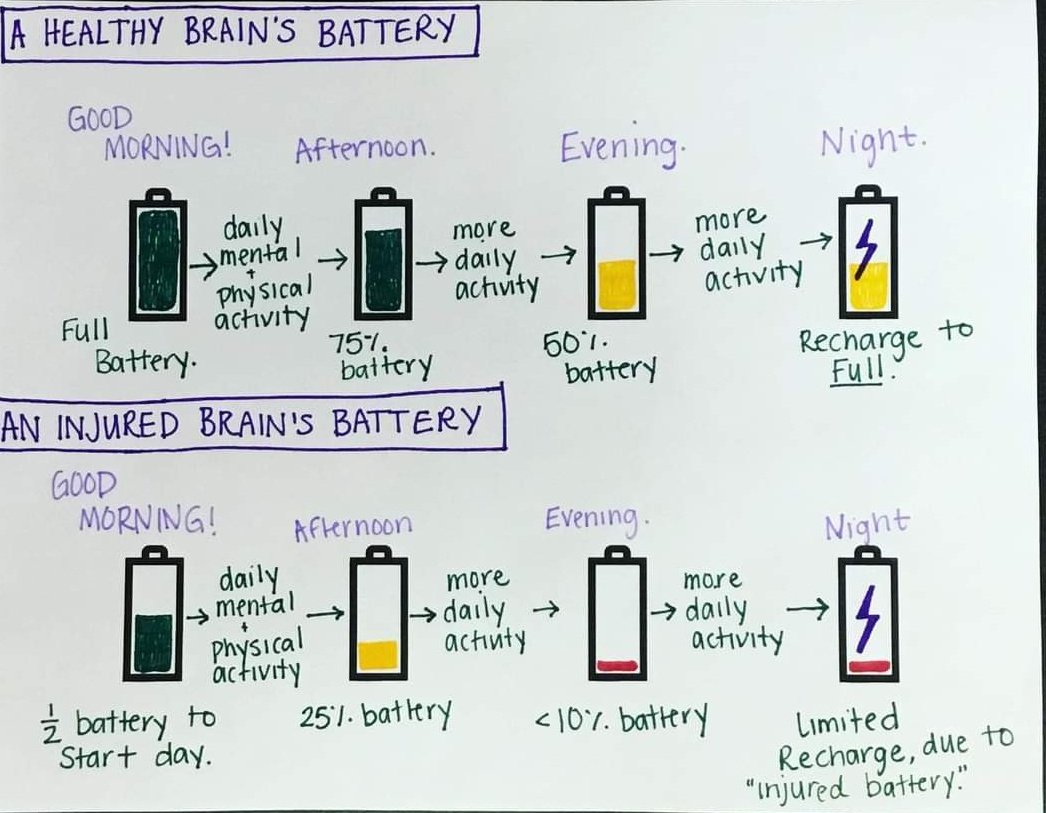 A HEALTHY BRAIN'S BATTERY
GOOD
MORNING!
Afternoon.
Evening.
Night.
daily
mental
+
physical
activity
more
daily
activity
more
daily
activity
Full
Battery.
75%
battery
50%
battery
Recharge to
Full.
AN INJURED BRAIN'S BATTERY
GOOD
MORNING!
Afternoon
Evening.
Night
daily
mental
+
physical
activity
more
daily
activity
more
daily
activity
½ battery to
Start day.
25% battery
<10% battery
Limited
Recharge, due to
"injured battery."